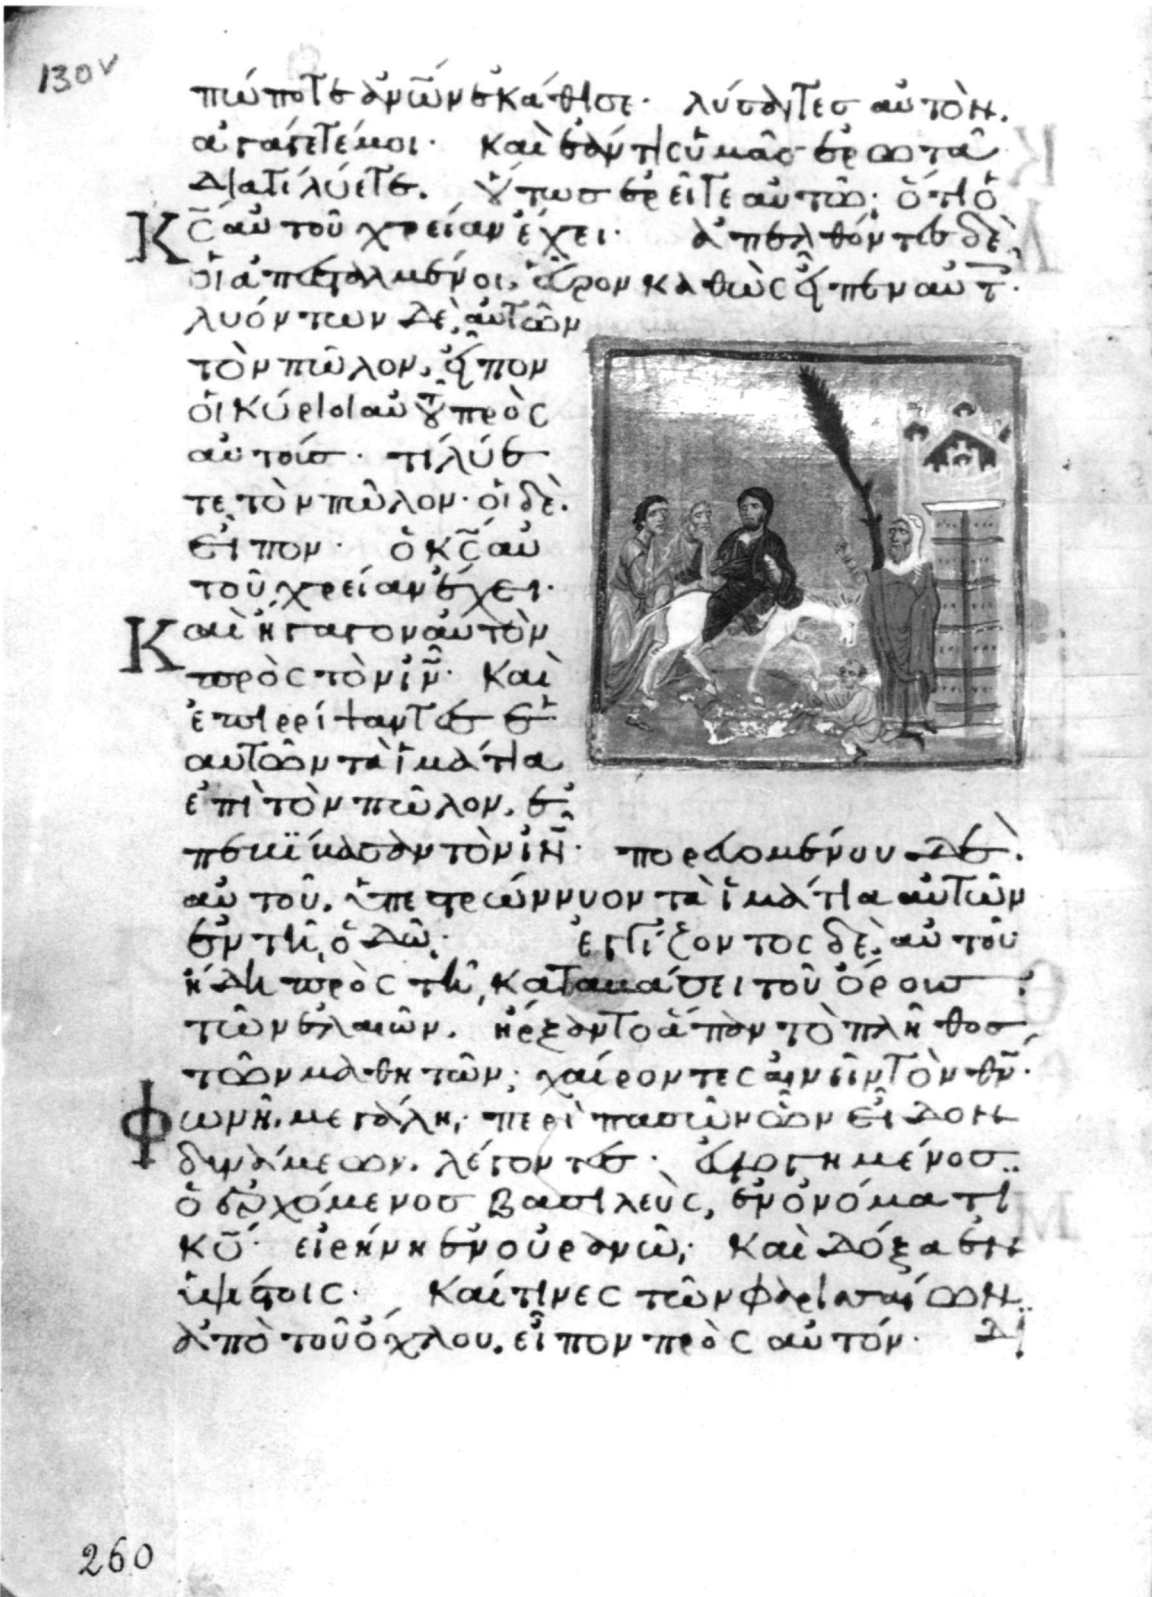 130v
πώποτε ἀν̅ω̅ν ἐκάθισε· λύσαντες αὐτὸν.
ἀγάγετέ μοι· καὶ ἐάν τις ὑμᾶς ἐρωτᾶ
διατί λύετε. οὕτως ἐρεῖτε αὐτῶ· ὅτι ὁ
κ̅ς̅ αὐτοῦ χρείαν ἔχει· ἀπελθόντες δὲ
οἱ ἀπεσταλμένοι, εὗρον καθὼς εἶπεν αὐτ
λυόντων δὲ αὐτῶν
τὸν πῶλον, εἶπον
οἱ κύριοι αὐτοῦ πρὸς
αὐτοίς· τί λύε
τε τὸν πῶλον· οἱ δὲ
εἶπον· ὁ κ̅ς̅ αὐ
τοῦ χρείαν ἔχει·
Καὶ ἤγαγον αὐτὸν
πρὸς τὸν ι̅ν̅· Καὶ
ἐπιρρίψαντες ἑ
αυτῶν τὰ ἱμάτια
ἐπὶ τὸν πῶλον. ἐ
πεκϊβασαν τὸν ι̅ν̅· πορευομένου δὲ
αὐτοῦ. ὑπεστρώννυον τὰ ἱμάτια αὐτῶν
ἐν τῆ ὁδῶ· ἐγγίζοντος δὲ αὐτοῦ
ἤδη πρὸς τῆ καταβάσει τοῦ ὄρους
τῶν ἐλαιῶν. ἤρξαντο ἅπαν τὸ πλῆθος
τῶν μαθητῶν, χαίροντες αἰνεῖν τὸν θ̅ν̅·
Φωνῆ μεγάλη, περὶ πασῶν ὧν εἶδον
δυνάμεων. λέγοντες· εὐλογημένος
ὁ ἐρχόμενος βασιλεὺς, ἐν ὀνόματι
κ̅υ̅· εἰρήνη ἐν οὐρανῶ, καὶ δόξα ἐν
ὑψίστοις· Καί τινες τῶν φαρισαίων
ἀπὸ τοῦ ὄχλου. εἶπον πρὸς αὐτόν· δι
260